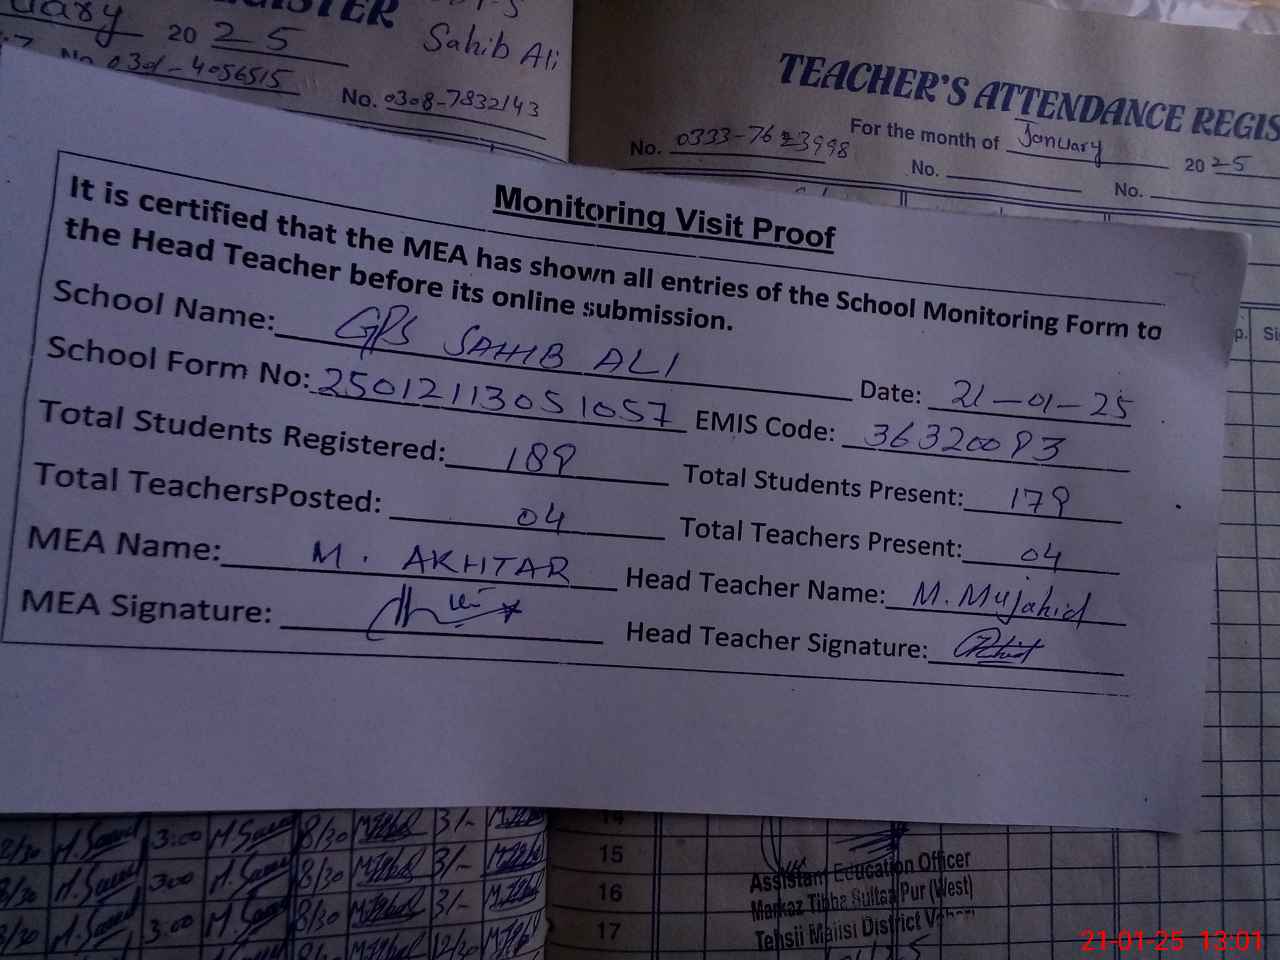 2025
Sahib Ali
No. 0301-4056515
No. 0308-7832143
TEACHER'S ATTENDANCE REGIS
For the month of January 2025
No. 0333-7623998
No.
No.
Monitoring Visit Proof
It is certified that the MEA has shown all entries of the School Monitoring Form to
the Head Teacher before its online submission.
School Name: GPS SAHIB ALI
Date: 21-01-25
School Form No: 25012113051057
EMIS Code: 36320093
Total Students Registered: 189
Total Students Present: 179
Total TeachersPosted: 04
Total Teachers Present: 04
MEA Name: M. AKHTAR
Head Teacher Name: M. Mujahid
MEA Signature:
Head Teacher Signature:
3:00 8/30 3/-
15
300 8/30 3/-
16
3:00 8/30 3/-
17
Assistant Education Officer
Markaz Tibba Sultan Pur (West)
Tehsil Mailsi District
21-01-25 13:01